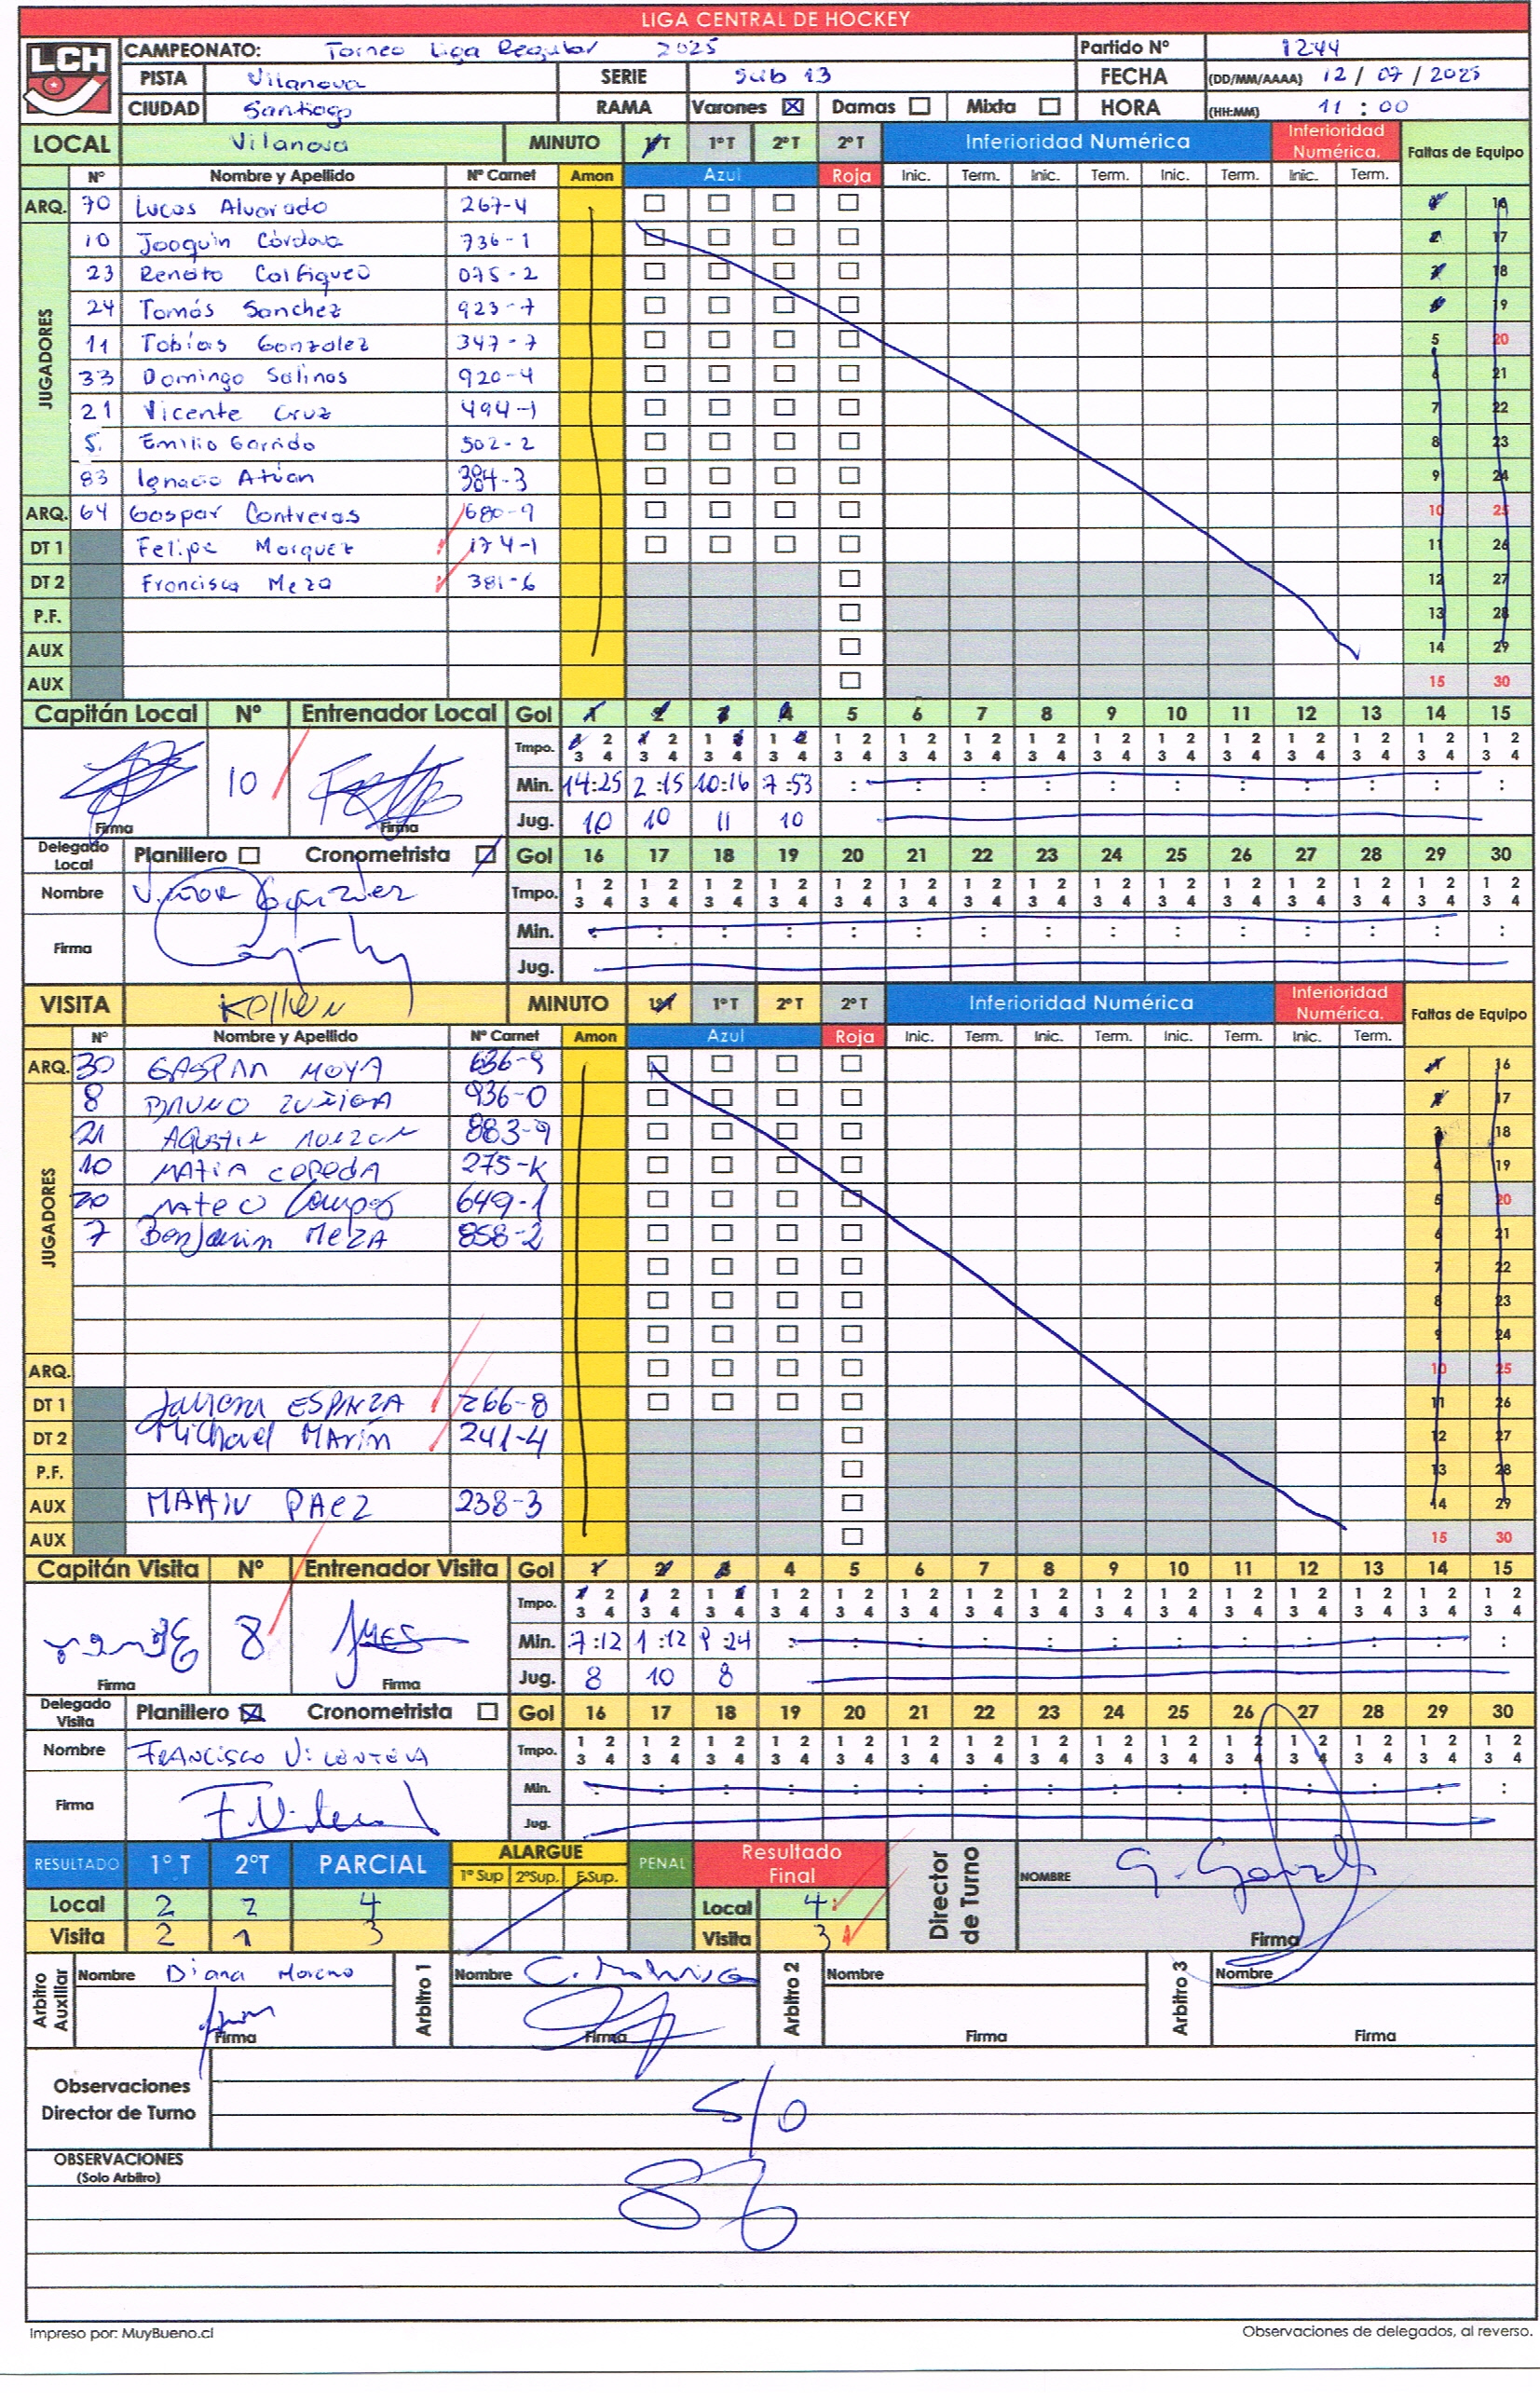 LIGA CENTRAL DE HOCKEY
LCH
CAMPEONATO: Torneo Liga Regular 2025 Partido Nº 1244
PISTA Vilanova SERIE Sub 13 FECHA (DD/MM/AAAA) 12 / 07 / 2025
CIUDAD Santiago RAMA Varones ☒ Damas ☐ Mixta ☐ HORA (HH:MM) 11 : 00
LOCAL Vilanova MINUTO 1ºT 1ºT 2ºT 2ºT Inferioridad Numérica Inferioridad Numérica. Faltas de Equipo
Nº Nombre y Apellido Nº Carnet Amon Azul Roja Inic. Term. Inic. Term. Inic. Term. Inic. Term.
ARQ. 70 Lucas Alvarado 267-4 1 16
JUGADORES
10 Joaquín Córdova 736-1 2 17
23 Renato Calfiqueo 075-2 3 18
24 Tomás Sanchez 923-7 4 19
11 Tobías Gonzalez 347-7 5 20
33 Domingo Salinas 920-4 6 21
21 Vicente Cruz 494-1 7 22
5. Emilio Garrido 502-2 8 23
83 Ignacio Atuan 384-3 9 24
ARQ. 64 Gaspar Contreras 680-9 10 25
DT 1 Felipe Marquez 174-1 11 26
DT 2 Francisco Meza 381-6 12 27
P.F. 13 28
AUX 14 29
AUX 15 30
Capitán Local Nº Entrenador Local Gol 1 2 3 4 5 6 7 8 9 10 11 12 13 14 15
Tmpo. 1 2 3 4 1 2 3 4 1 2 3 4 1 2 3 4 1 2 3 4 1 2 3 4 1 2 3 4 1 2 3 4 1 2 3 4 1 2 3 4 1 2 3 4 1 2 3 4 1 2 3 4 1 2 3 4 1 2 3 4
10 Min. 14:25 2:15 10:16 7:53 : : : : : : : : : : :
Firma Firma Jug. 10 10 11 10
Delegado Local Planillero ☐ Cronometrista ☑ Gol 16 17 18 19 20 21 22 23 24 25 26 27 28 29 30
Nombre Tmpo. 1 2 3 4 1 2 3 4 1 2 3 4 1 2 3 4 1 2 3 4 1 2 3 4 1 2 3 4 1 2 3 4 1 2 3 4 1 2 3 4 1 2 3 4 1 2 3 4 1 2 3 4 1 2 3 4 1 2 3 4
Firma Min. : : : : : : : : : : : : : : :
Jug.
VISITA MINUTO 1ºT 1ºT 2ºT 2ºT Inferioridad Numérica Inferioridad Numérica. Faltas de Equipo
Nº Nombre y Apellido Nº Carnet Amon Azul Roja Inic. Term. Inic. Term. Inic. Term. Inic. Term.
ARQ. 30 GASPAR MOYA 636-9 1 16
JUGADORES
8 BRUNO ZUÑIGA 936-0 2 17
21 AGUSTIN 883-9 3 18
10 MATIA CEPEDA 275-K 4 19
20 MATEO Campos 649-1 5 20
7 Benjamin MEZA 858-2 6 21
7 22
8 23
9 24
ARQ. 10 25
DT 1 ESPINZA 266-8 11 26
DT 2 Michael MArín 241-4 12 27
P.F. 13 28
AUX MARTIN PAEZ 238-3 14 29
AUX 15 30
Capitán Visita Nº Entrenador Visita Gol 1 2 3 4 5 6 7 8 9 10 11 12 13 14 15
Tmpo. 1 2 3 4 1 2 3 4 1 2 3 4 1 2 3 4 1 2 3 4 1 2 3 4 1 2 3 4 1 2 3 4 1 2 3 4 1 2 3 4 1 2 3 4 1 2 3 4 1 2 3 4 1 2 3 4 1 2 3 4
8 Min. 7:12 1:12 9:24 : : : : : : : : : : : :
Firma Firma Jug. 8 10 8
Delegado Visita Planillero ☒ Cronometrista ☐ Gol 16 17 18 19 20 21 22 23 24 25 26 27 28 29 30
Nombre FRANCISCO Tmpo. 1 2 3 4 1 2 3 4 1 2 3 4 1 2 3 4 1 2 3 4 1 2 3 4 1 2 3 4 1 2 3 4 1 2 3 4 1 2 3 4 1 2 3 4 1 2 3 4 1 2 3 4 1 2 3 4 1 2 3 4
Firma Min. : : : : : : : : : : : : : : :
Jug.
RESULTADO 1º T 2ºT PARCIAL ALARGUE 1º Sup 2ºSup. E.Sup. PENAL Resultado Final Director de Turno NOMBRE
Local 2 2 4 Local 4
Visita 2 1 3 Visita 3 Firma
Arbitro Auxiliar Nombre Diana Moreno Arbitro 1 Nombre Arbitro 2 Nombre Arbitro 3 Nombre
Firma Firma Firma Firma
Observaciones Director de Turno S/O
OBSERVACIONES
(Solo Arbitro)
Impreso por: MuyBueno.cl Observaciones de delegados, al reverso.